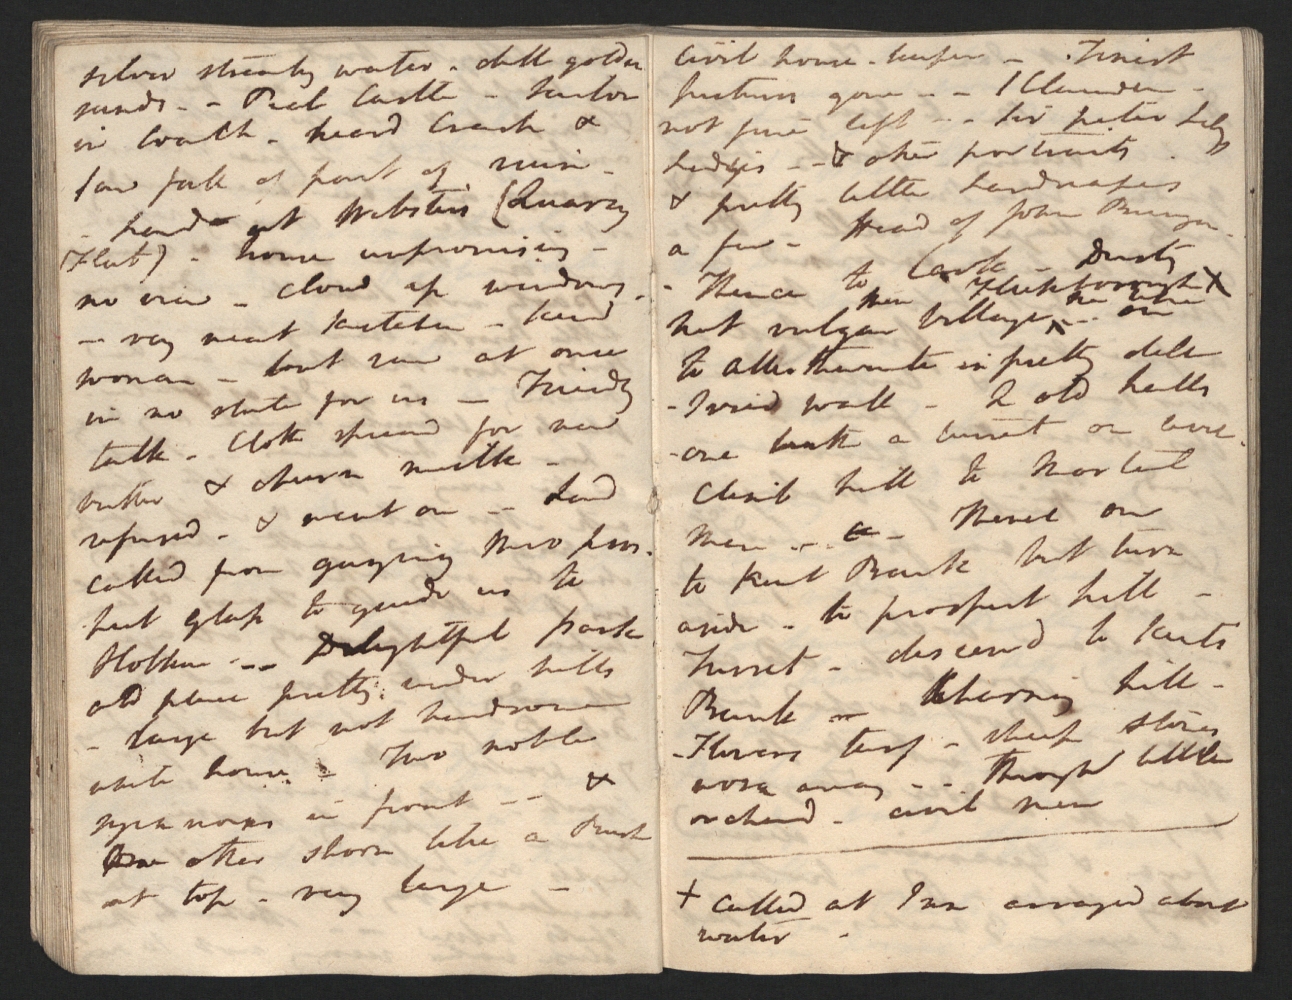 silver streaky water - dull golden
sands - - Peel Castle - Sailor
in Coach - heard Crash &
saw fall of part of ruin -
- hand at Websters (Quarry
Flat) - house unpromising -
no view - closed up windows -
- very neat kitchen - kind
woman - but saw at once
in no state for us - Friendly
talk - Cloth spread for new
butter & churn milk -
refused - & went on - Lad
called from quarrying
hat glass to guide us to
Holker - - Delightful park
old place pretty under hills
- large but not handsome
white house - Two noble
sycamores in front - - &
One other shorn like a Bush
at top - very large -
Civil house-keeper - Finest
pictures gone - - 1 Claude -
not fine left - - Sir Peter Lely
Ladies - - & other portraits -
& pretty little Landscapes
a few - Head of John Bunyan -
- Thence to Cark - Dusty
hot vulgar village - then Flukborough X
- on
to Allithwaite in pretty dell
- Ivied wall - 2 old halls
- one with a turret on
Climb hill to
Men - - Thence on
to Kent Bank but turn
aside - to prospect hill -
Turret - descend to Kents
Bank - Charming hill -
- Flowers turf - sheep stones
worn away - - Through little
orchard - civil men
+ called at Inn arranged about
water -